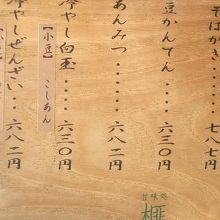 そばがき・・・・・七八七円
豆かんてん・・・六三〇円
あんみつ・・・・・六八二円
冷やし白玉・・・・六三〇円
【小豆】こしあん
冷やしぜんざい・・・六八二円
甘味処
榧